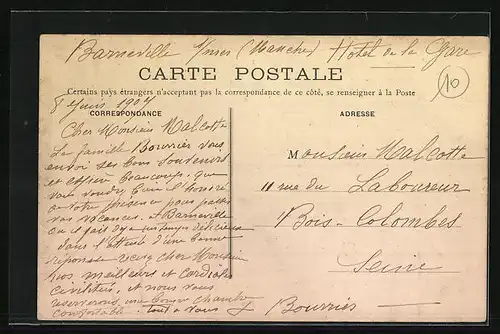 Barneville s/mer (Manche) Hotel de la Gare
CARTE POSTALE
Certains pays étrangers n'acceptent pas la correspondance de ce côté, se renseigner à la Poste
10
8 Juin 1907
CORRESPONDANCE
ADRESSE
Cher Monsieur Malcotte
La famille Bourriér vous
envoi ses bons souvenirs
et espère beaucoup que
vous voudrez bien
votre présence pour passer
vos vacances. à Barneville
ou il fait un temps délicieux
dans l'attente d'une bonne
réponse recevez cher Monsieur
nos meilleurs et cordiales
civilités, et nous vous
reserverons une bonne chambre
confortable. Tout a vous
Monsieur Malcotte
11 rue du Laboureur
Bois-Colombes
Seine
Bourriér